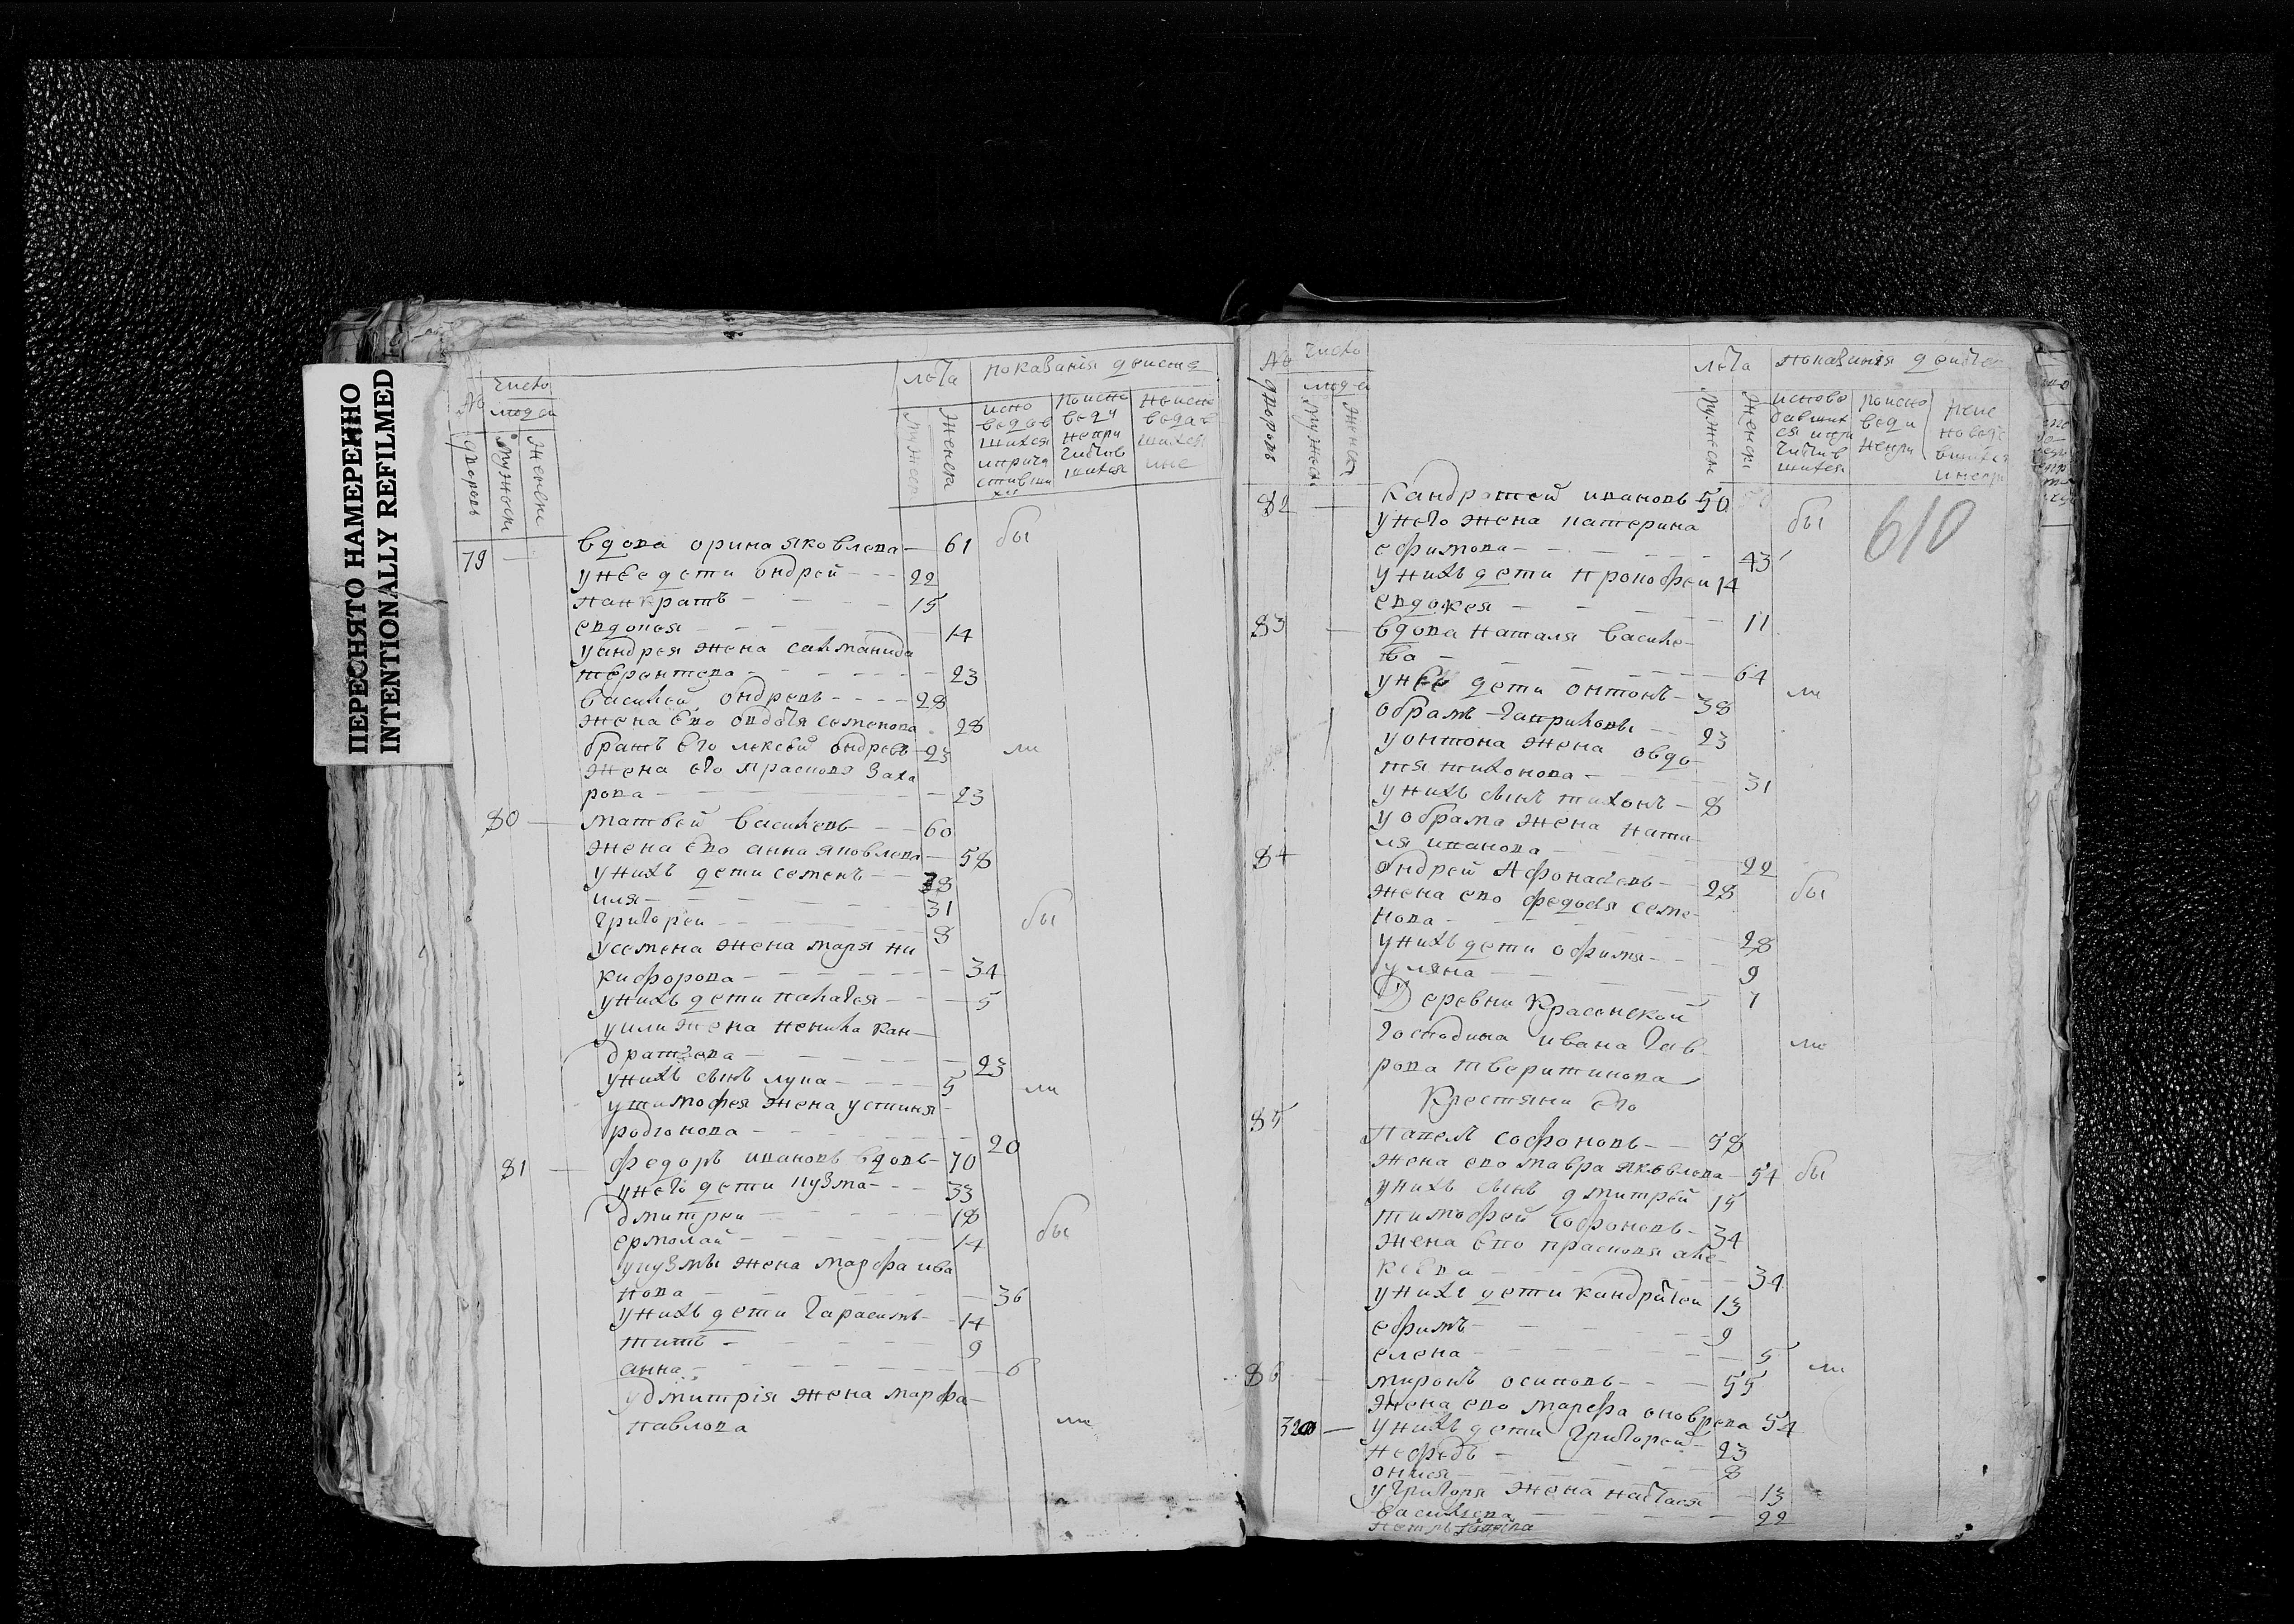 ПЕРЕСНЯТО НАМЕРЕННО
INTENTIONALLY REFILMED
№ дворовъ
число
людеи
мужеск
женск
лѣта
мужеск
женск
показания
испо
ведав
шихся
и прича
стивши
хся
по испо
веди
непри
частив
шихся
неиспо
ведав
шихся
и не
79
вдова орина яковлева 61 бы
у нее дети ондрей 22
панкратъ 15
евдокея 14
у андрея жена
терентева 23
василей ондревъ 28
жена ево овдотя семенова 28
братъ его алексей ондревъ 23 ли
жена его прасковя заха
рова 23
80 матвей василевъ 60
жена ево анна яковлева 58
у нихъ дети семенъ 38
иля 31
григореи 8 бы
у семена жена маря ни
кифорова 34
у нихъ дети палагея 5
у или жена кан
дратева 23
у нихъ сынъ лука 5 ли
у тимофея жена устиня
родионова 20
81 федоръ ивановъ вдовъ 70
у него дети кузма 33
дмитреи 18
ермолай 14 бы
у кузмы жена марфа ива
нова 36
у нихъ дети гарасимъ 14
титъ 9
анна 6
у дмитрия жена марфа
павлова ли
№ дворовъ
число
людеи
мужеск
женск
лѣта
мужеск
женски
показания
исполо
610
82 кандратей ивановъ 50
у него жена катерина бы
ефимова 43
у нихъ дети прокофеи 14
евдокея 11
83 вдова наталя василе
ва 64
у нее дети онтонъ 38 ли
обрамъ гавриловы 23
у онтона жена овдо
тя тихонова 31
у нихъ сынъ тихонъ 8
у обрама жена ната
ля иванова 22
84 ондрей афонасевъ 28 бы
жена ево федося семе
нова 28
у нихъ дети офимя 9
уляна 7
Деревни Красенской
господина ивана гав ли
рова тверитинова
Крестяни его
85 павелъ софоновъ 58
жена ево мавра яковлева 54 бы
у нихъ сынъ дмитрей 15
тимофей софоновъ 34
жена ево прасковя але
ксева 34
у нихъ дети кандратеи 13
ефимъ 9
елена 5
86 миронъ осиповъ 55 ли
жена ево марфа 54
320 у нихъ дети григорей 23
нефедъ 8
13
у григоря жена настася
василева 22